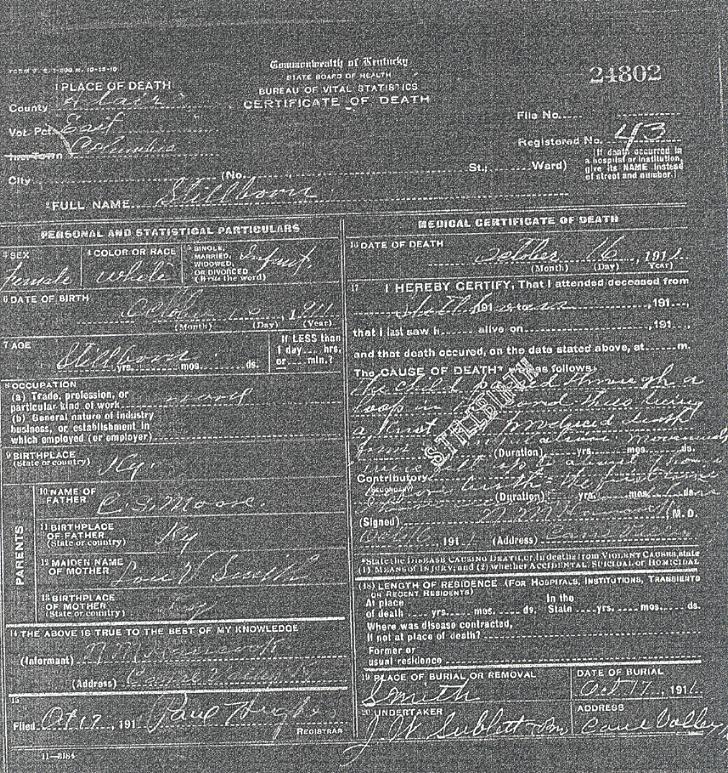 Commonwealth of Kentucky
STATE BOARD OF HEALTH
BUREAU OF VITAL STATISTICS
CERTIFICATE OF DEATH
24802
1 PLACE OF DEATH
County Adair
Vot. Pct. East
Columbia
City (No. St.; Ward)
File No.
Registered No. 43
(If death occurred in
a hospital or institution,
give its NAME instead
of street and number.)
2 FULL NAME Stillborn
PERSONAL AND STATISTICAL PARTICULARS
3 SEX
Female
4 COLOR OR RACE
white
5 SINGLE,
MARRIED,
WIDOWED,
OR DIVORCED
(Write the word)
Infant
6 DATE OF BIRTH
October 16, 1911
(Month) (Day) (Year)
7 AGE
Stillborn
yrs. mos. ds.
If LESS than
1 day hrs.
or min.?
8 OCCUPATION
(a) Trade, profession, or
particular kind of work
(b) General nature of industry
business, or establishment in
which employed (or employer)
9 BIRTHPLACE
(State or country) Ky.
PARENTS
10 NAME OF
FATHER C. S. Moore.
11 BIRTHPLACE
OF FATHER
(State or country) Ky
12 MAIDEN NAME
OF MOTHER Smith
13 BIRTHPLACE
OF MOTHER
(State or country) Ky
14 THE ABOVE IS TRUE TO THE BEST OF MY KNOWLEDGE
(Informant) N. M. Hancock
(Address) Cane Valley
15
Filed Oct 17, 191 Paul Hughes
REGISTRAR
11-3184
MEDICAL CERTIFICATE OF DEATH
16 DATE OF DEATH
October 16, 1911
(Month) (Day) Year)
17 I HEREBY CERTIFY, That I attended deceased from
Stillborn 191, 191
that I last saw h alive on, 191
and that death occured, on the date stated above, at m.
The CAUSE OF DEATH* was as follows:
the child passed through a
loop in and thus tying
a knot produced death
from movements
(Duration) yrs. mos. ds.
were kept up to
Contributory
(Duration) yrs. mos. ds.
STILLBIRTH
(Signed) N. M. Hancock M.D.
Oct 16, 191 (Address) Cane Valley
*State the DISEASE CAUSING DEATH, or, in deaths from VIOLENT CAUSES, state
(1) MEANS OF INJURY; and (2) whether ACCIDENTAL, SUICIDAL or HOMICIDAL
(18) LENGTH OF RESIDENCE (FOR HOSPITALS, INSTITUTIONS, TRANSIENTS
OR RECENT RESIDENTS)
At place
of death yrs. mos. ds.
In the
State yrs. mos. ds.
Where was disease contracted,
If not at place of death?
Former or
usual residence
19 PLACE OF BURIAL OR REMOVAL
Smith
DATE OF BURIAL
Oct 17, 1911
20 UNDERTAKER
J. W. Sublett
ADDRESS
Cane Valley